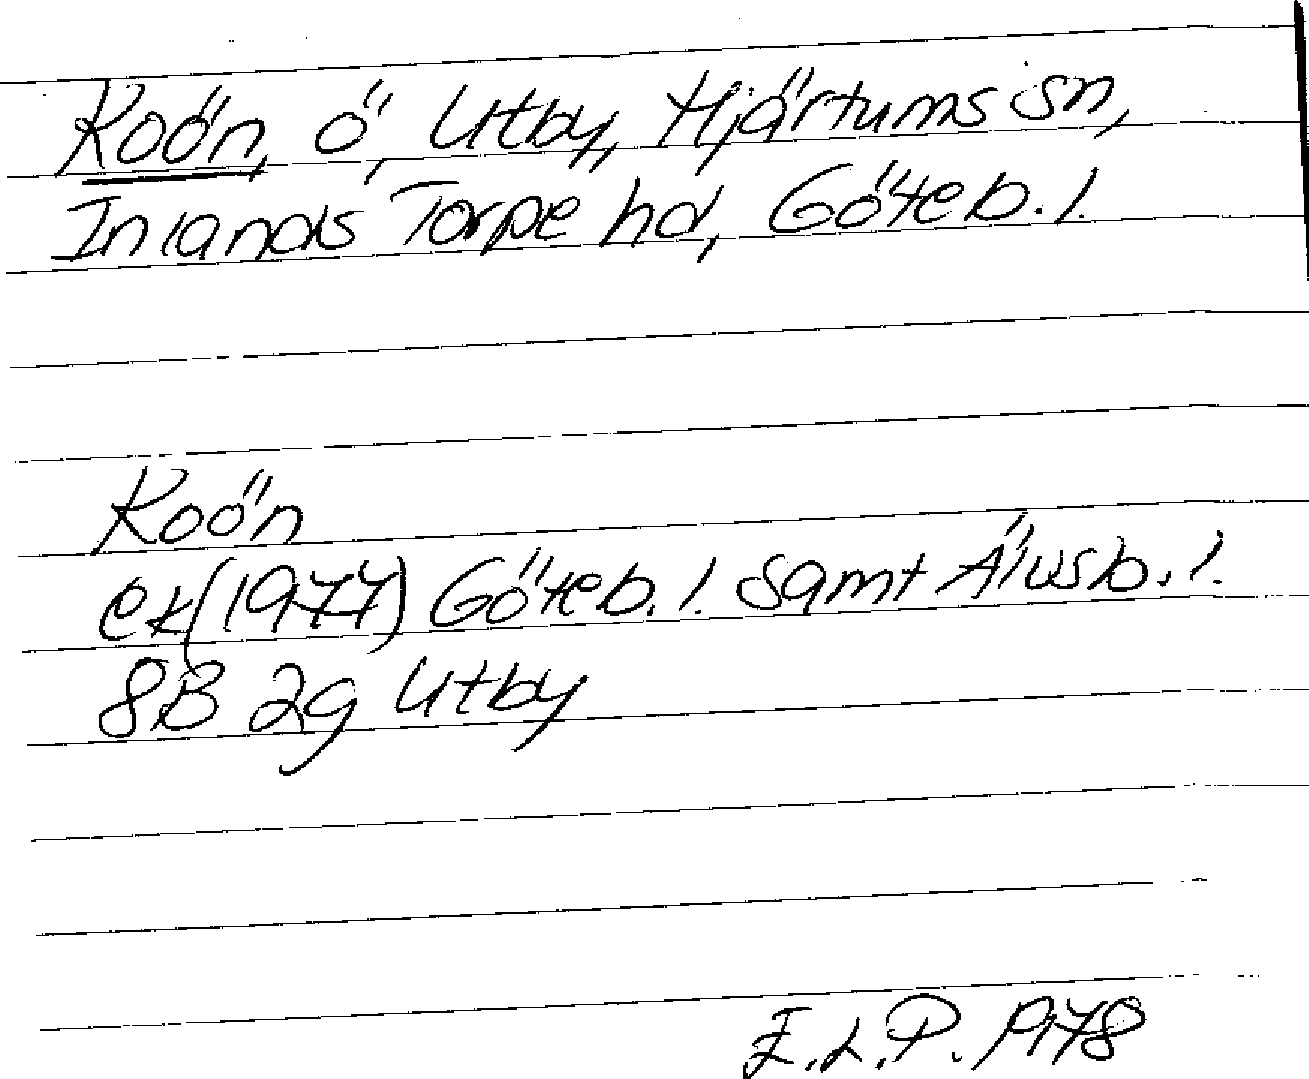 Koön, ö, Utby, Hjärtums sn,
Inlands Torpe hd, Göteb. l.
Koön
ek (1977) Göteb. l. samt Älvsb. l.
8B 2g Utby
E.L.P. 1978